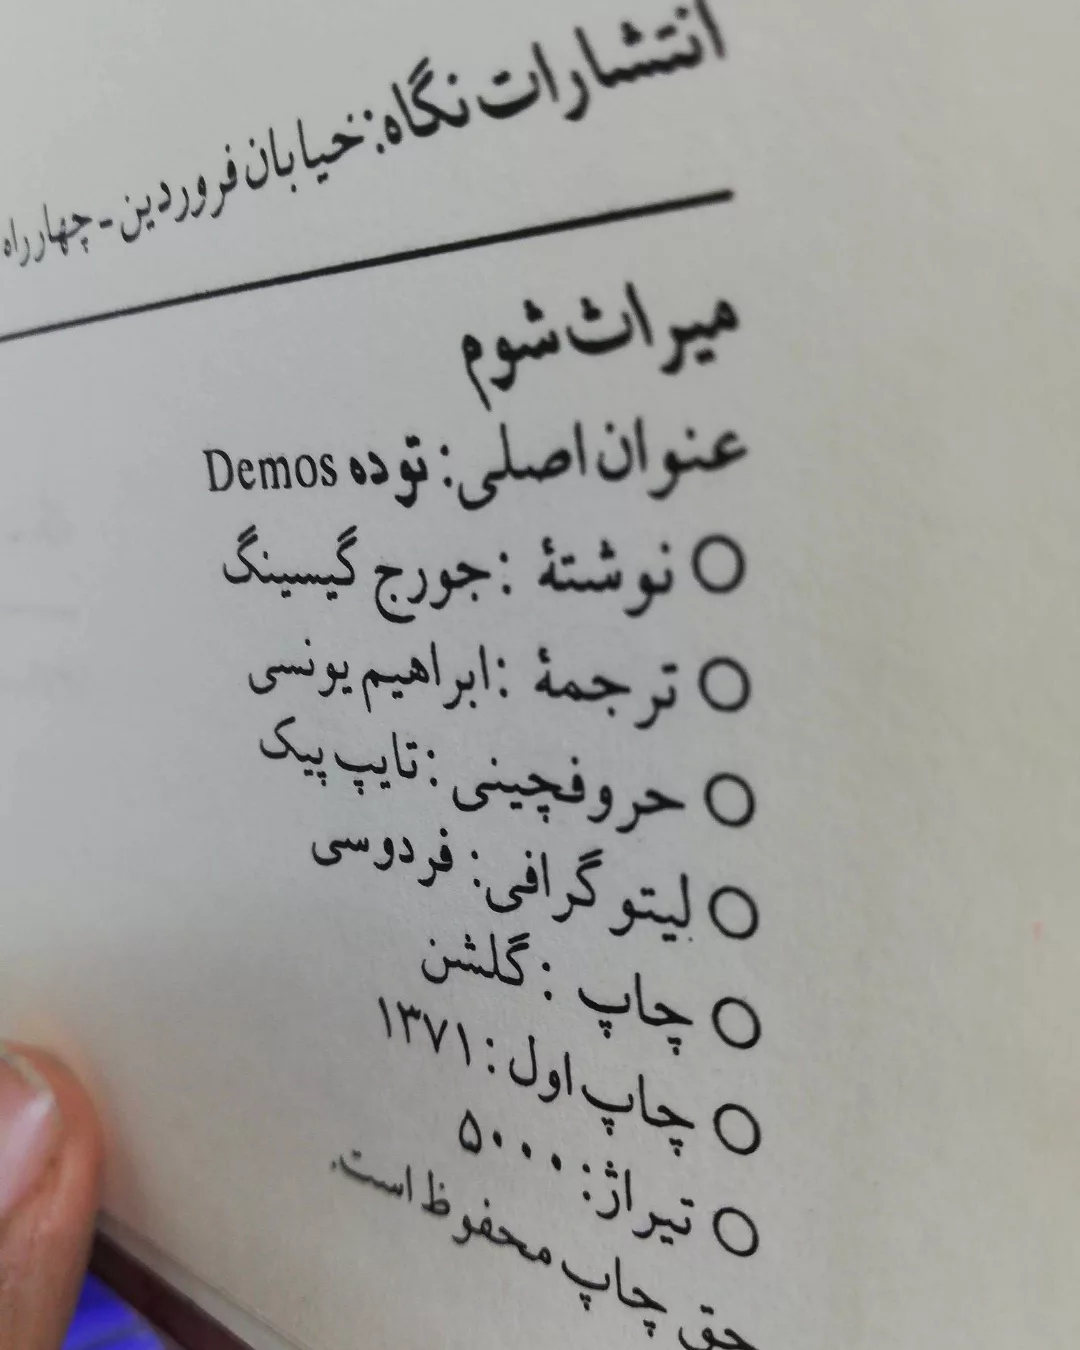 انتشارات نگاه: خیابان فروردین - چهارراه
میراث شوم
عنوان اصلی: توده Demos
○ نوشتهٔ : جورج گیسینگ
○ ترجمهٔ : ابراهیم یونسی
○ حروفچینی : تایپ پیک
○ لیتوگرافی: فردوسی
○ چاپ : گلشن
○ چاپ اول : ۱۳۷۱
○ تیراژ: ۵۰۰۰
حق چاپ محفوظ است.